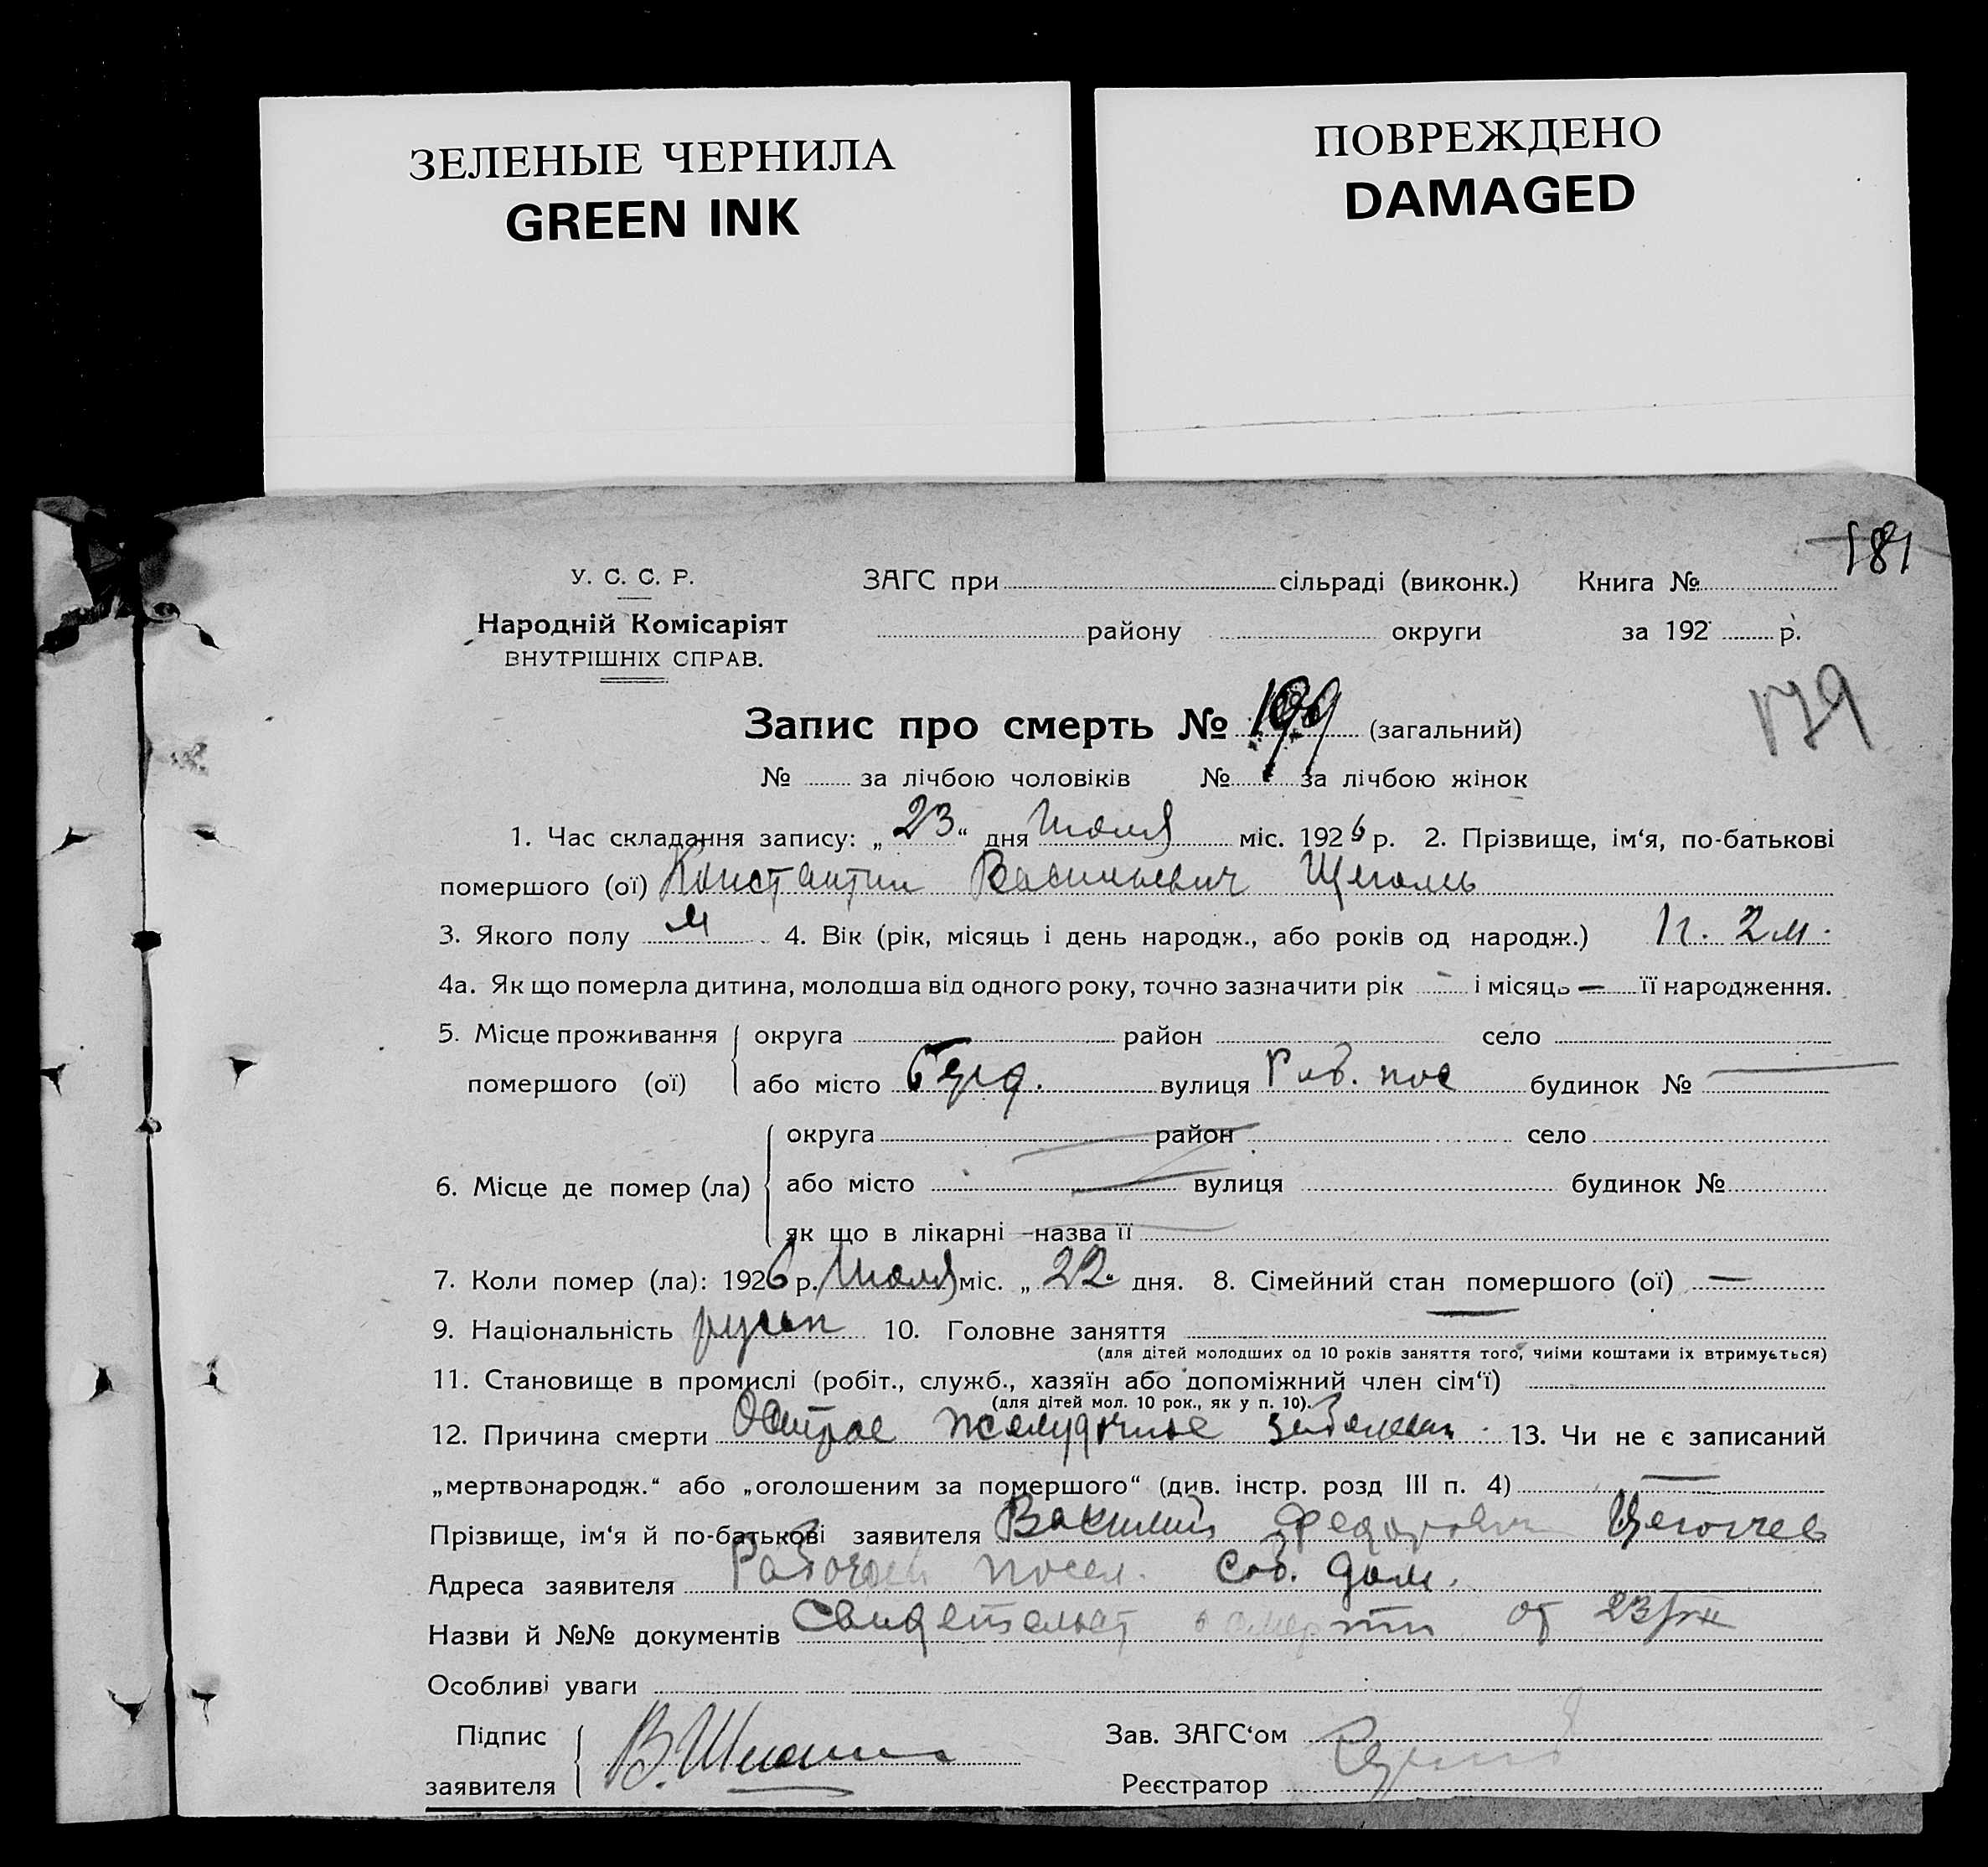 ЗЕЛЕНЫЕ ЧЕРНИЛА
GREEN INK
ПОВРЕЖДЕНО
DAMAGED
181
У. С. С. Р.
Народній Комісаріят
ВНУТРІШНІХ СПРАВ.
ЗАГС при сільраді (виконк.) Книга №
району округи за 192 р.
179
Запис про смерть № (загальний)
№ за лічбою чоловіків № за лічбою жінок
1. Час складання запису: „23“ дня Июля міс. 1926 р. 2. Прізвище, ім‘я, по-батькові
помершого (ої) Константин Васильевич Щеголь
3. Якого полу м 4. Вік (рік, місяць і день народж., або років од народж.) 1 г. 2 м.
4а. Як що померла дитина, молодша від одного року, точно зазначити рік – і місяць – її народження.
5. Місце проживання округа район село
помершого (ої) або місто вулиця Раб. пос будинок № —
6. Місце де помер (ла) округа район село
або місто вулиця будинок №
як що в лікарні – назва її
7. Коли помер (ла): 1926 р. Июля міс. „22. дня. 8. Сімейний стан помершого (ої) —
9. Національність 10. Головне заняття —
(для дітей молодших од 10 років заняття того, чиїми коштами їх втримується)
11. Становище в промислі (робіт., служб., хазяїн або допоміжний член сім‘ї)
(для дітей мол. 10 рок., як у п. 10).
12. Причина смерти Острое желудочное заболеван. 13. Чи не є записаний
„мертвонародж.“ або „оголошеним за помершого“ (див. інстр. розд III п. 4) —
Прізвище, ім‘я й по-батькові заявителя Василий Федорович
Адреса заявителя Рабочий посел. соб. дом.
Назви й №№ документів Свидетельст о смерти от 23/VII
Особливі уваги
Підпис Зав. ЗАГС‘ом
заявителя Реєстратор